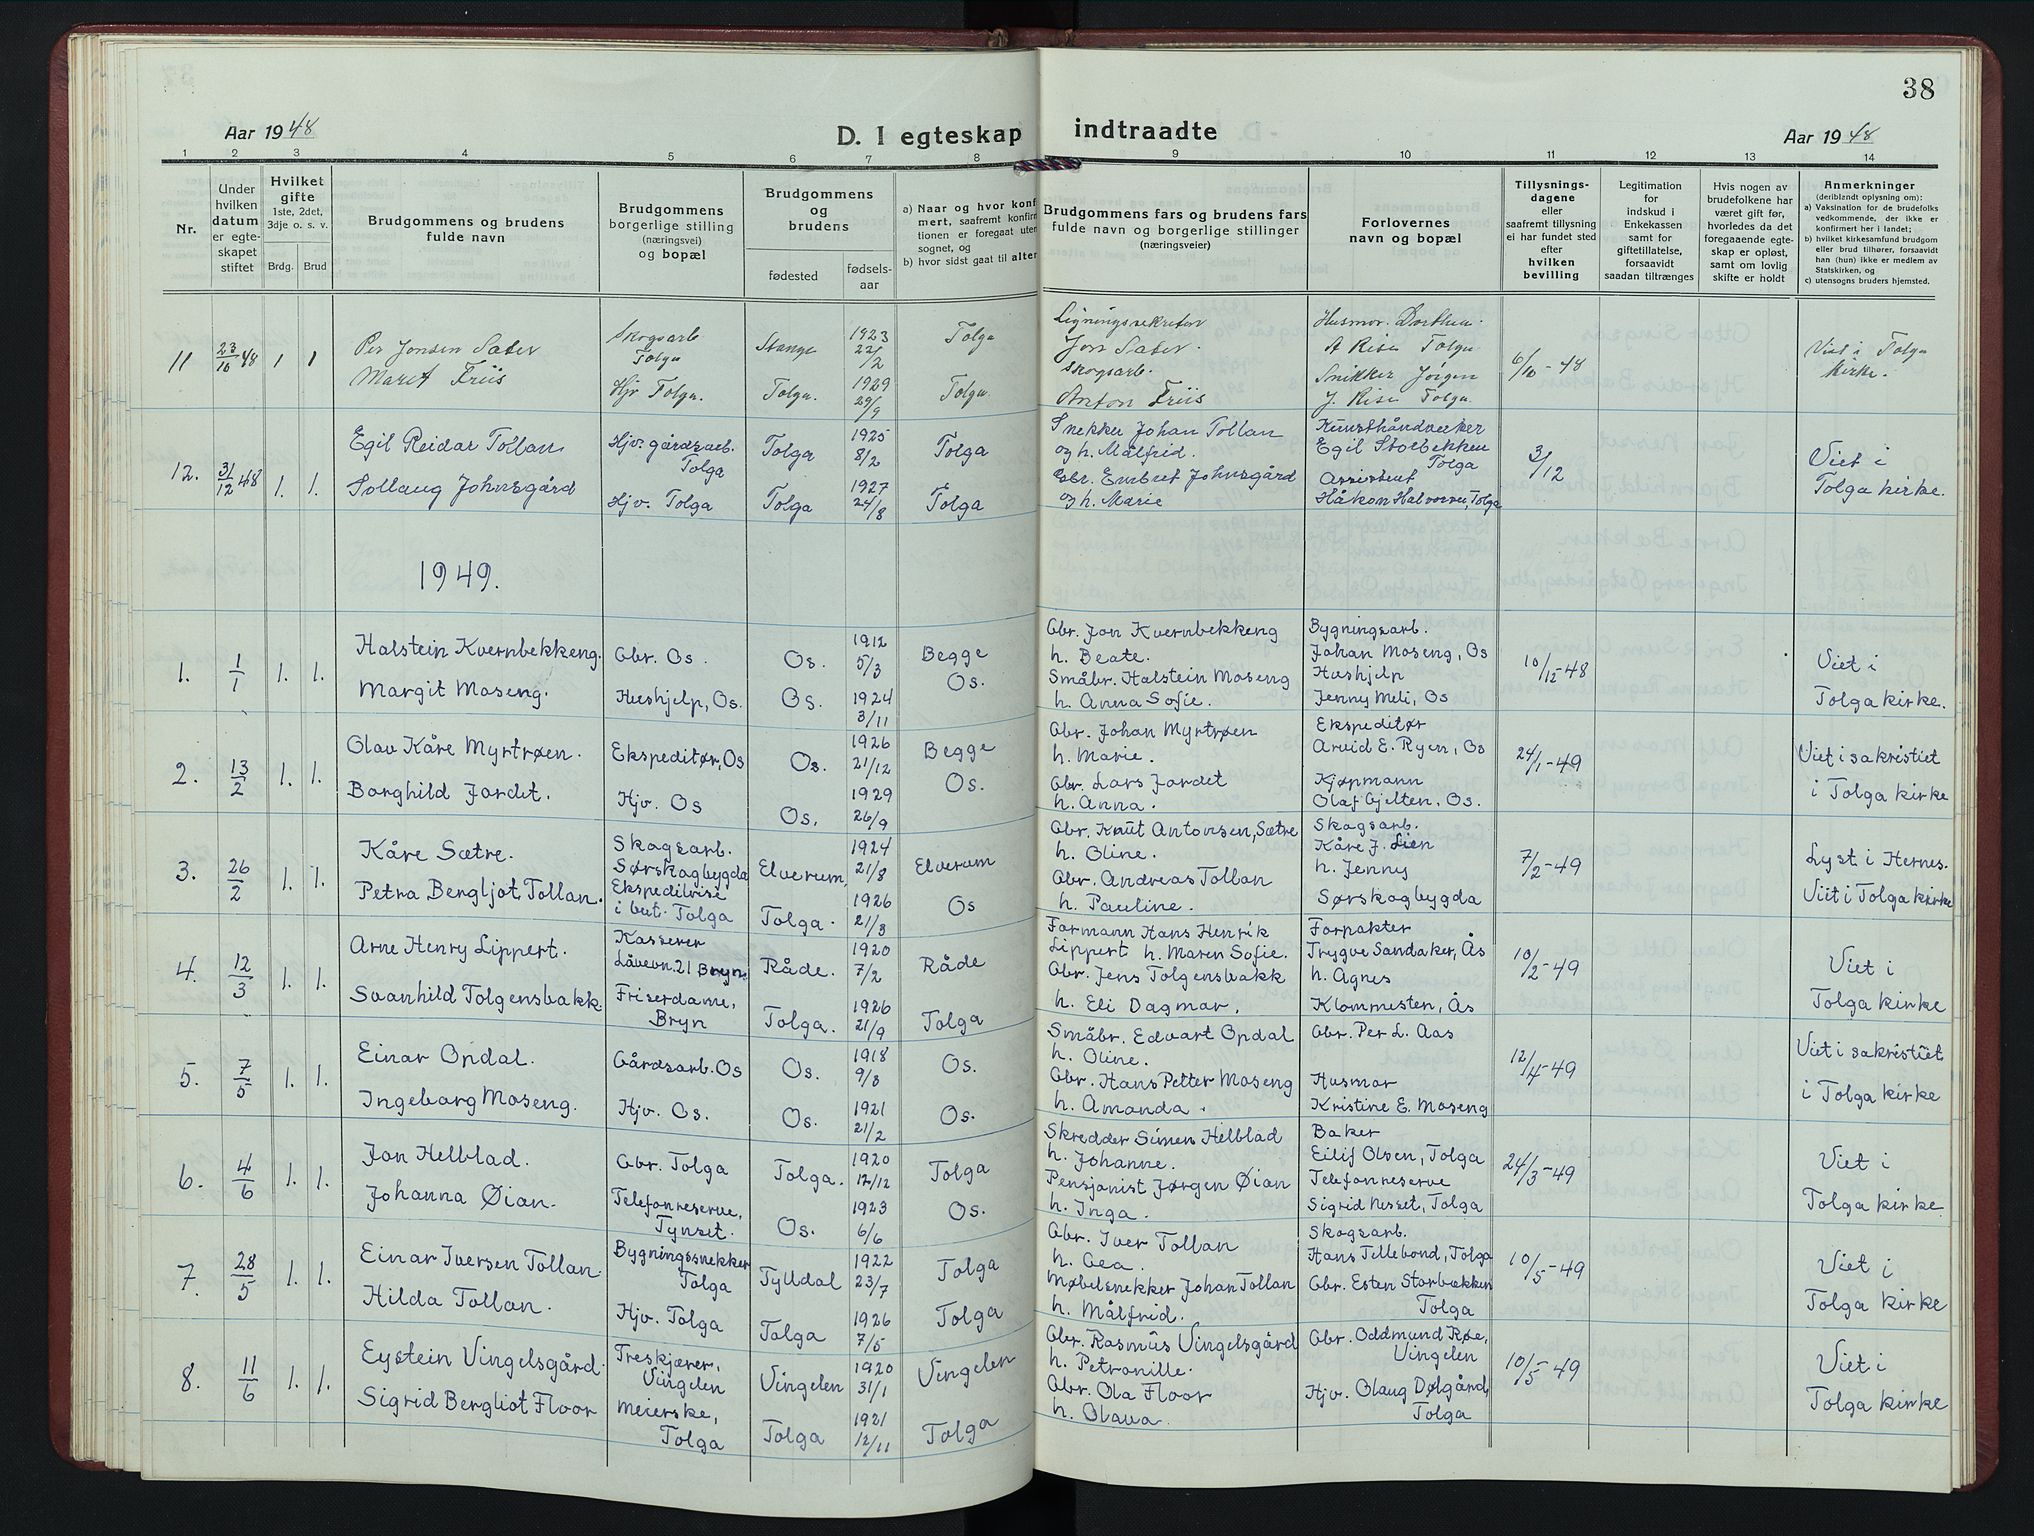 38
Aar 1948
D. I egteskap indtraadte
Aar 1948
1 2 3 4 5 6 7 8 9 10 11 12 13 14
Nr.
Under hvilken datum er egte-skapet stiftet
Hvilket gifte
1ste, 2det, 3dje o. s. v.
Brdg. Brud
Brudgommens og brudens fulde navn
Brudgommens borgerlige stilling (næringsvei) og bopæl
Brudgommens og brudens
fødested
fødsels-aar
a) Naar og hvor konf
mert, saafremt konfir
tionen er foregaat uten
sognet, og
b) hvor sidst gaat til alter
Brudgommens fars og brudens fars
fulde navn og borgerlige stillinger
(næringsveier)
Forlovernes
navn og bopæl
Tillysnings-
dagene
eller
saafremt tillysning
ei har fundet sted
efter
hvilken
bevilling
Legitimation
for
indskud i
Enkekassen
samt for
giftetillatelse,
forsaavidt
saadan tiltrænges
Hvis nogen av
brudefolkene har
været gift før,
hvorledes da det
foregaaende egte-
skap er opløst,
samt om lovlig
skifte er holdt
Anmerkninger
(deriblandt oplysning om):
a) Vaksination for de brudefolks
vedkommende, der ikke er
konfirmert her i landet;
b) hvilket kirkesamfund brudgom
eller brud tilhører, forsaavidt
han (hun) ikke er medlem av
Statskirken, og
c) utensogns bruders hjemsted.
11 23/10 48 1 1
Per Jonsen Sæter
Maret Friis
Skogsarb
Tolga
Hjv Tolga.
Stange
Tolga.
1923
22/2
1929
29/9
Tolga
Tolga
Ligningssekretær
Jon Sæter.
Skogsarb.
Anton Friis
Husmor Dorthea
A Risé Tolga
Snikker Jörgen
J. Risé Tolga.
6/10 - 48
Viet i Tolga
kirke.
12. 31/12 48 1. 1.
Egil Reidar Tollan
Sollaug Johnsgård
Hjv. gårdsarb.
Tolga
Hjv. Tolga
Tolga
Tolga
1925
8/2
1927
24/8
Tolga
Tolga
Snekker Johan Tollan
og h. Målfrid.
Gbr. Embret Johnsgård
og h. Marie
Kunsthåndverker
Egil Storbekken
Tolga
Assistent
Håkon Halvorsen, Tolga
3/12
Viet i
Tolga kirke.
1949.
1. 1/1 1. 1.
Halstein Kvernbekkeng.
Margit Moseng.
Gbr. Os.
Hushjelp, Os.
Os.
Os.
1912
5/3
1924
3/11
Begge
Os.
Gbr. Jon Kvernbekkeng
h. Beate.
Småbr. Halstein Moseng
h. Anna Sofie.
Bygningsarb.
Johan Moseng, Os
Hushjelp
Jenny Meli, Os
10/12-48
Viet i
Tolga kirke.
2. 13/2 1. 1.
Olav Kåre Myrtrøen.
Borghild Jordet.
Ekspeditør, Os
Hjv. Os
Os.
Os.
1926
21/12
1929
26/9
Begge
Os.
Gbr. Johan Myrtrøen
h. Marie.
Gbr. Lars Jordet
h. Anna.
Ekspeditør
Arvid E. Ryen, Os
Kjøpmann
Olaf Gjelten, Os.
24/1-49
Viet i sakristiet
i Tolga kirke
3. 26/2 1. 1.
Kåre Sætre.
Petra Bergljot Tollan.
Skogsarb.
Sørskogbygda
Ekspeditrise
i but. Tolga
Elverum,
Tolga.
1924
21/8
1926
21/3
Elverum
Os
Gbr. Knut Antonsen, Sætre
h. Oline.
Gbr. Andreas Tollan
h. Pauline.
Skogsarb.
Kåre J. Lien
h. Jenny
Sørskogbygda
7/2-49
Lyst i Hernes.
Viet i Tolga kirke
4. 12/3 1. 1.
Arne Henry Lippert.
Svanhild Tolgensbakk
Kasserer
Låvevn. 21 Bryn.
Friserdame,
Bryn
Råde.
Tolga.
1920
7/2
1926
21/9
Råde
Tolga
Formann Hans Henrik
Lippert h. Maren Sofie.
Gbr. Jens Tolgensbakk
h. Eli Dagmar.
Forpakter
Trygve Sandaker, Ås
h. Agnes
Klommesten, Ås
10/2-49
Viet i
Tolga kirke
5. 7/5 1. 1.
Einar Opdal.
Ingeborg Moseng.
Gårdsarb. Os
Hjv. Os.
Os.
Os.
1918
9/3
1921
21/2
Os.
Os.
Småbr. Edvart Opdal
h. Oline.
Gbr. Hans Petter Moseng
h. Amanda.
Gbr. Per L. Aas
Husmor
Kristine E. Moseng
12/4-49
Viet i sakristiet
i Tolga kirke
6. 4/6 1. 1.
Jon Helblad.
Johanna Øian.
Gbr. Tolga
Telefonreserve,
Tynset.
Tolga.
Os.
1920
12/12
1923
6/6
Tolga
Os.
Skredder Simen Helblad
h. Johanne.
Pensjonist Jørgen Øian
h. Inga.
Baker
Eilif Olsen, Tolga
Telefonreserve
Sigrid Nesset, Tolga
24/3-49
Viet i
Tolga kirke.
7. 28/5 1. 1.
Einar Iversen Tollan.
Hilda Tollan.
Bygningssnekker
Tolga
Hjv. Tolga
Tylldal
Tolga
1922
23/7
1926
7/5
Tolga
Tolga
Gbr. Iver Tollan
h. Gea.
Møbelsnekker Johan Tollan
h. Målfrid.
Skogsarb.
Hans Tillebond, Tolga
Gbr. Esten Storbækken
Tolga
10/5-49
Viet i
Tolga kirke
8. 11/6 1. 1.
Eystein Vingelsgård.
Sigrid Bergliot Floor
Treskjærer,
Vingelen
Meierske,
Tolga
Vingelen
Tolga
1920
31/1
1921
12/11
Vingelen
Tolga
Gbr. Rasmus Vingelsgård
h. Petronille.
Gbr. Ola Floor
h. Olava.
Gbr. Oddmund Røe,
Vingelen
Hjv. Olaug Dølgård,
Tolga
10/5-49
Viet i
Tolga kirke